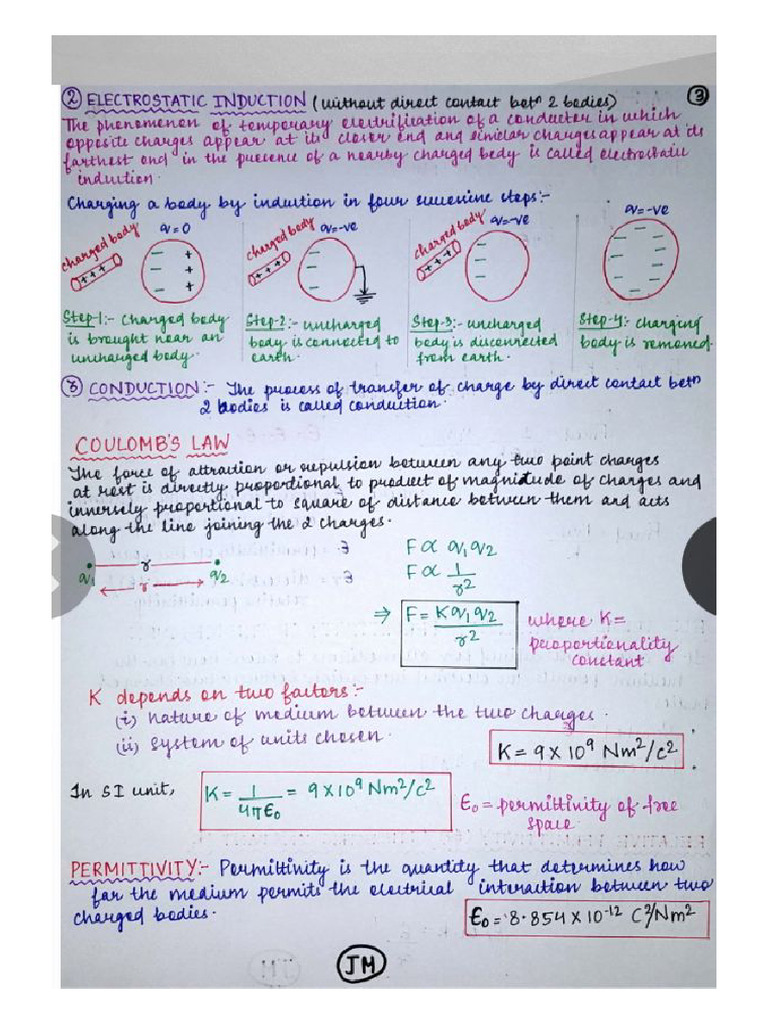 ② ELECTROSTATIC INDUCTION (without direct contact betⁿ 2 bodies) ③
The phenomenon of temporary electrification of a conductor in which
opposite charges appear at its closer end and similar charges appear at its
farthest end in the presence of a nearby charged body is called electrostatic
induction.
Charging a body by induction in four successive steps:-
charged body q=0 charged body q=-ve charged body q=-ve q=-ve
+++ +++ +++
Step-1:- Charged body
is brought near an
uncharged body.
Step-2:- uncharged
body is connected to
earth.
Step-3:- uncharged
body is disconnected
from earth.
Step-4:- charging
body is removed.
③ CONDUCTION:- The process of transfer of charge by direct contact betⁿ
2 bodies is called conduction.
COULOMB'S LAW
The force of attraction or repulsion between any two point charges
at rest is directly proportional to product of magnitude of charges and
inversely proportional to square of distance between them and acts
along the line joining the 2 charges.
r
q₁ q₂
r
F ∝ q₁q₂
F ∝ 1/r²
⇒ F = Kq₁q₂/r²
where K=
proportionality
constant
K depends on two factors:-
(i) Nature of medium between the two charges.
(ii) System of units chosen.
K = 9×10⁹ Nm²/C²
In SI unit, K = 1/4πε₀ = 9×10⁹ Nm²/C²
ε₀ = permittivity of free
space.
PERMITTIVITY:- Permittivity is the quantity that determines how
far the medium permits the electrical interaction between two
charged bodies.
ε₀ = 8.854×10⁻¹² C²/Nm²
JM